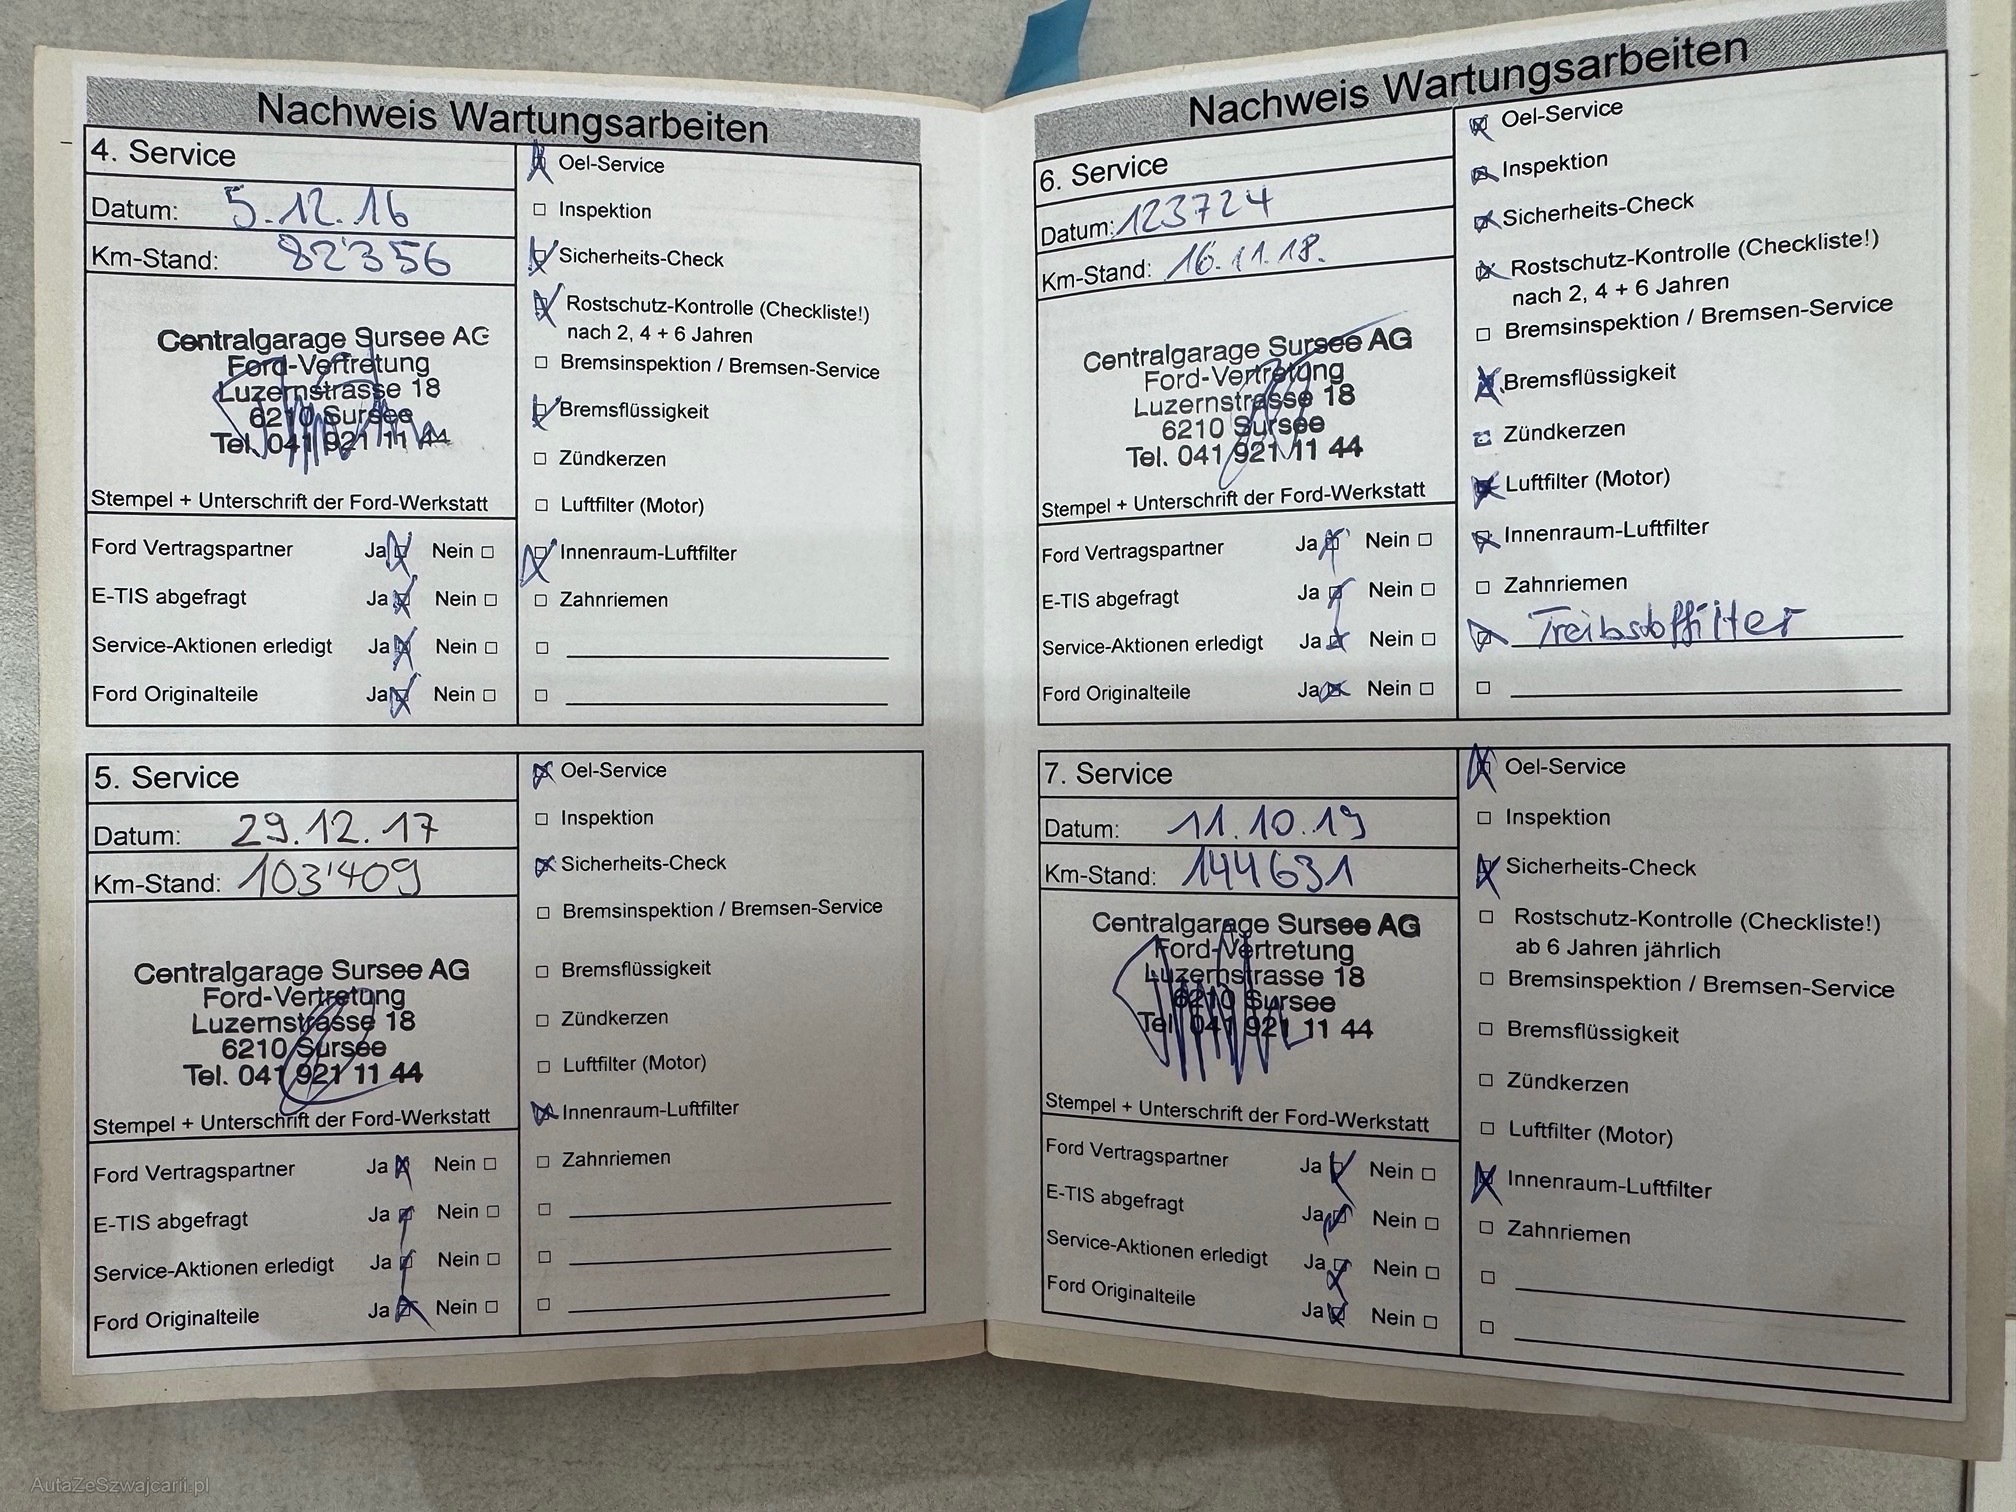 Nachweis Wartungsarbeiten
4. Service
Datum: 5.12.16
Km-Stand: 82'356
Centralgarage Sursee AG
Ford-Vertretung
Luzernstrasse 18
6210 Sursee
Tel. 041 921 11 44
Stempel + Unterschrift der Ford-Werkstatt
Ford Vertragspartner Ja Nein
E-TIS abgefragt Ja Nein
Service-Aktionen erledigt Ja Nein
Ford Originalteile Ja Nein
Oel-Service
Inspektion
Sicherheits-Check
Rostschutz-Kontrolle (Checkliste!)
nach 2, 4 + 6 Jahren
Bremsinspektion / Bremsen-Service
Bremsflüssigkeit
Zündkerzen
Luftfilter (Motor)
Innenraum-Luftfilter
Zahnriemen
5. Service
Datum: 29.12.17
Km-Stand: 103'409
Centralgarage Sursee AG
Ford-Vertretung
Luzernstrasse 18
6210 Sursee
Tel. 041 921 11 44
Stempel + Unterschrift der Ford-Werkstatt
Ford Vertragspartner Ja Nein
E-TIS abgefragt Ja Nein
Service-Aktionen erledigt Ja Nein
Ford Originalteile Ja Nein
Oel-Service
Inspektion
Sicherheits-Check
Bremsinspektion / Bremsen-Service
Bremsflüssigkeit
Zündkerzen
Luftfilter (Motor)
Innenraum-Luftfilter
Zahnriemen
Nachweis Wartungsarbeiten
6. Service
Datum: 123724
Km-Stand: 16.11.18.
Centralgarage Sursee AG
Ford-Vertretung
Luzernstrasse 18
6210 Sursee
Tel. 041 921 11 44
Stempel + Unterschrift der Ford-Werkstatt
Ford Vertragspartner Ja Nein
E-TIS abgefragt Ja Nein
Service-Aktionen erledigt Ja Nein
Ford Originalteile Ja Nein
Oel-Service
Inspektion
Sicherheits-Check
Rostschutz-Kontrolle (Checkliste!)
nach 2, 4 + 6 Jahren
Bremsinspektion / Bremsen-Service
Bremsflüssigkeit
Zündkerzen
Luftfilter (Motor)
Innenraum-Luftfilter
Zahnriemen
Treibstoffilter
7. Service
Datum: 11.10.19
Km-Stand: 144631
Centralgarage Sursee AG
Ford-Vertretung
Luzernstrasse 18
6210 Sursee
Tel. 041 921 11 44
Stempel + Unterschrift der Ford-Werkstatt
Ford Vertragspartner Ja Nein
E-TIS abgefragt Ja Nein
Service-Aktionen erledigt Ja Nein
Ford Originalteile Ja Nein
Oel-Service
Inspektion
Sicherheits-Check
Rostschutz-Kontrolle (Checkliste!)
ab 6 Jahren jährlich
Bremsinspektion / Bremsen-Service
Bremsflüssigkeit
Zündkerzen
Luftfilter (Motor)
Innenraum-Luftfilter
Zahnriemen
AutaZeSzwajcarii.pl